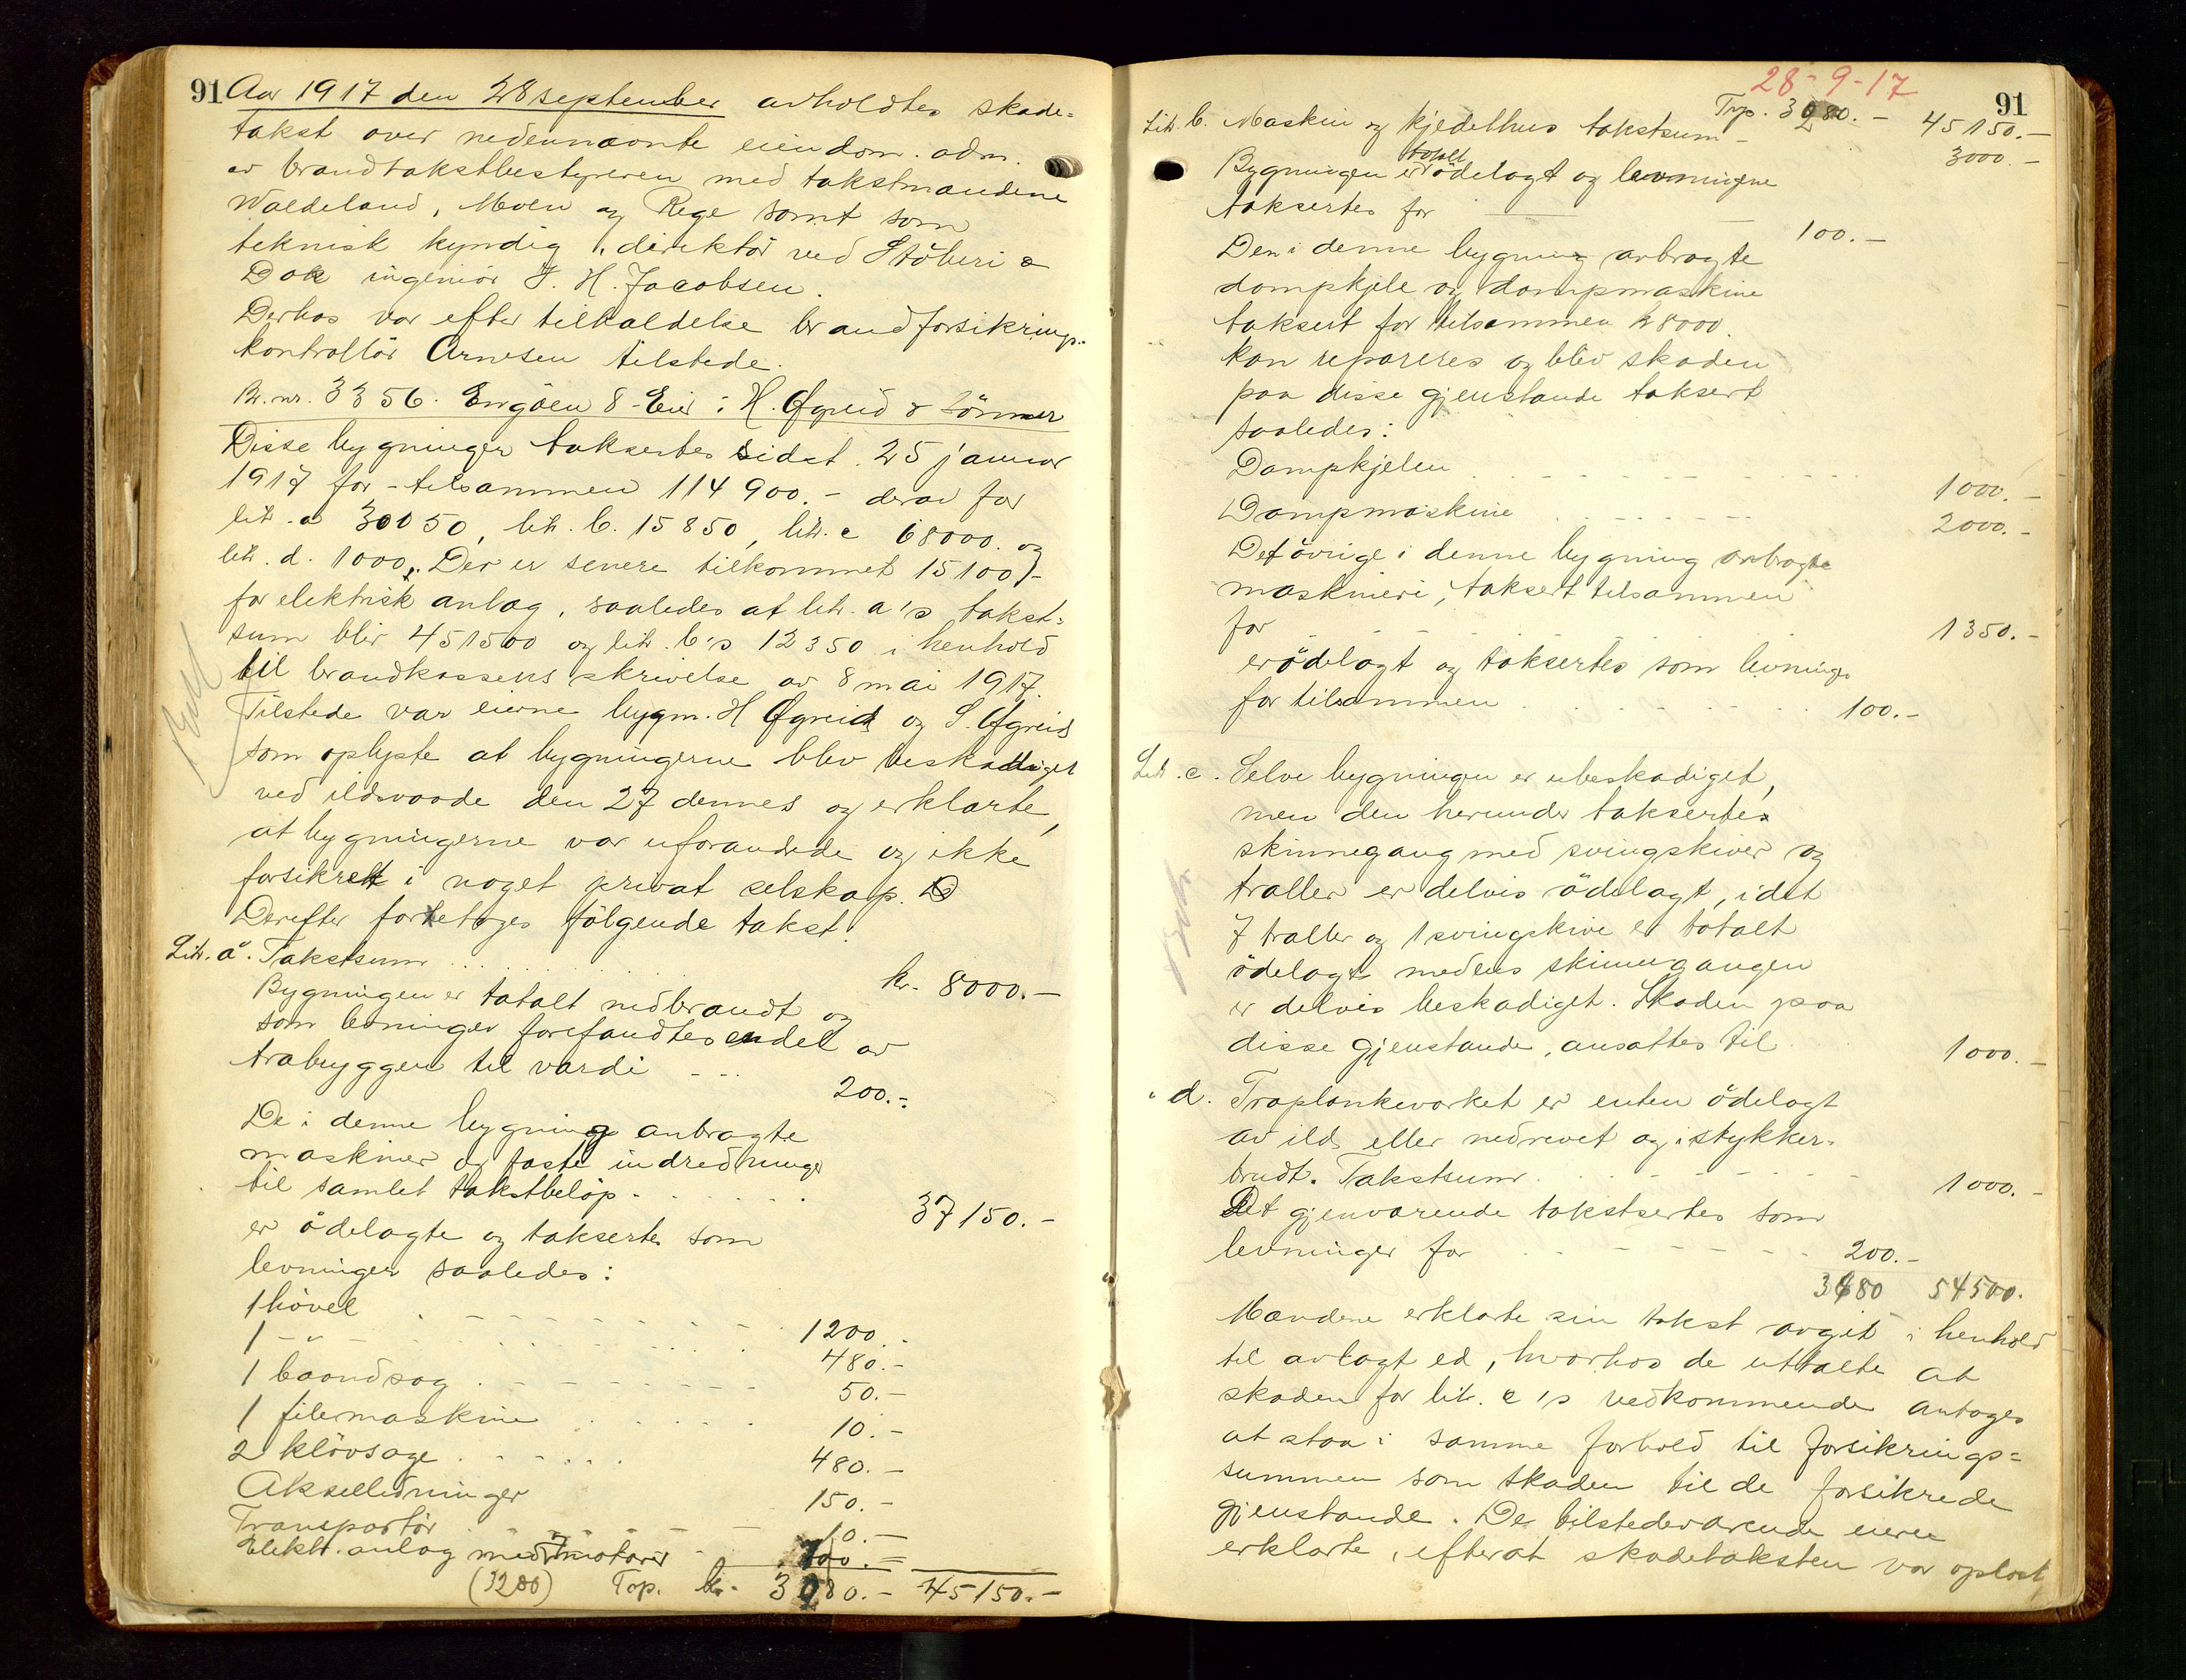 91 Aar 1917 den 28 september avholdtes skade-
takst over nedennævnte eiendom. adm.
av brandtakstbestyreren med takstmændene
Waldeland, Moen og Rege samt som
teknisk kyndig, direktör ved Stöberi &
Dok ingeniör J. H. Jacobsen.
Derhos var efter tilkaldelse brandforsikrings-
kontrollör Arnesen tilstede.
Br. nr. 3356. Engöen 8 - Eier: H. Øgreid & Sönner
Disse bygninger takserte sidst 25 januar
1917 for tilsammen 114900.- derav for
litr. a 30050, litr. b. 15850, litr. c 68000. og
litr. d. 1000. Der er senere tilkommet 15100/-
for elektrisk anlæg, saaledes at litr. a's takst-
sum blir 451500 og litr. b's 12350 i henhold
til brandkassens skrivelse av 8 mai 1917.
Tilstede var eierne bygm. H Øgreid og S. Øgreid
som oplyste at bygningerne blev beskadiget
ved ildsvaade den 27 dennes og erklærte,
at bygningerne var uforandrede og ikke
forsikret i noget privat selskap.
Derefter foretoges fölgende takst.
Litr. a. Takstsum kr. 8000.-
Bygningen er totalt nedbrandt og
som levninger forefandtes endel av
træbryggen til værdi 200.-
De i denne bygning anbragte
maskiner og faste indredninger
til samlet takstbelöp 37150.-
er ödelagte og takserte som
levninger saaledes:
1 hövel 1200.-
1 -"- 480.-
1 baandsag 50.-
1 filemaskine 10.-
2 klövsage 480.-
Akselledninger 150.-
Transportör 10.-
Elektr. anlæg med motorer
(3200) Trp. kr. 3280.- 45150.-
28-9-17
91
Trp. 3280.- 45150.-
Litr. b. Maskin og kjedelhus takstsum 3000.-
Bygningen er totalt ödelagt og levningene
taksertes for 100.-
Den i denne bygning anbragte
dampkjele og dampmaskine
taksert for tilsammen kr 8000
kan repareres og blev skaden
paa disse gjenstande taksert
saaledes:
Dampkjelen 1000.-
Dampmaskine 2000.-
Det övrige i denne bygning anbragte
maskineri, taksert tilsammen
for 1350.-
er ödelagt og taksertes som levninger
for tilsammen 100.-
Litr. c. Selve bygningen er ubeskadiget,
men den herunder taksertes
skinnegang med svingskiver og
traller er delvis ödelagt, idet
7 traller og 1 svingskive er totalt
ödelagt medens skinnegangen
er delvis beskadiget. Skaden paa
disse gjenstande, ansattes til 1000.-
" d. Træplankeværket er enten ödelagt
av ild eller nedrevet og istykker-
brudt. Takstsum 1000.-
Det gjenværende takstsertes som
levninger for 200.-
3480 54500.
Mændene erklærte sin takst avgit i henhold
til avlagt ed, hvorhos de uttalte at
skaden for litr. c's vedkommende antages
at staa i samme forhold til forsikrings-
summen som skaden til de forsikrede
gjenstande. De tilstedeværende eiere
erklærte, efterat skadetaksten var oplæst,